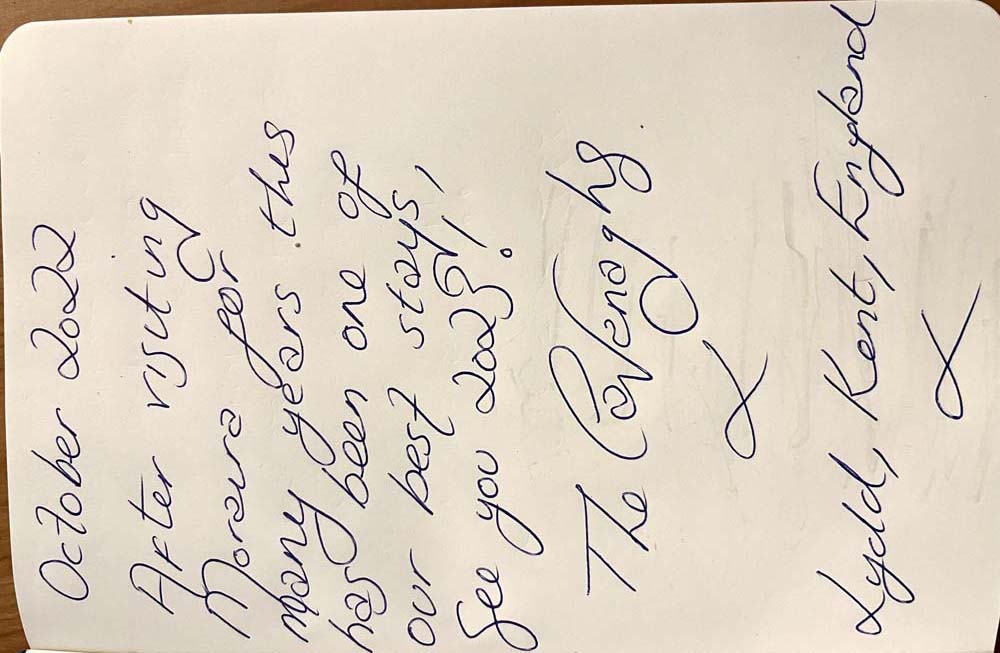 October 2022
After visiting
Moraira for
many years this
has been one of
our best stays,
See you 2023!!
The Cavanaghs
x
Lydd, Kent, England
x